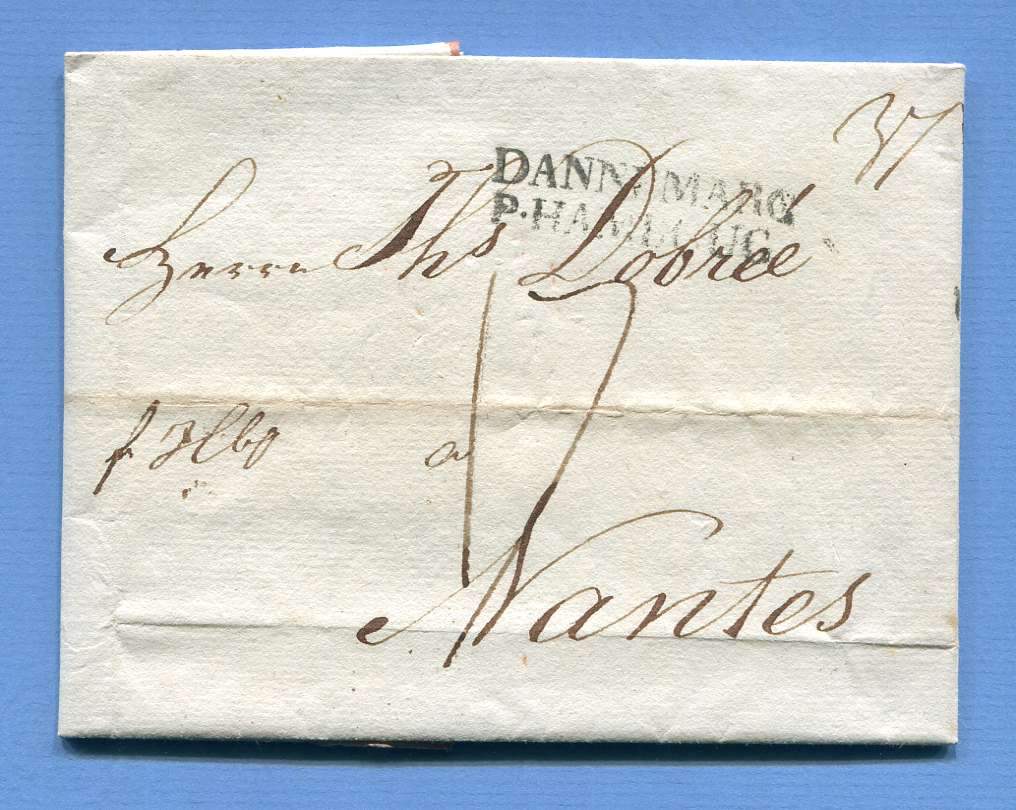 37
DANNEMARC
P. HAMBOURG
Herrn Ths Dobrée
a
17
Nantes